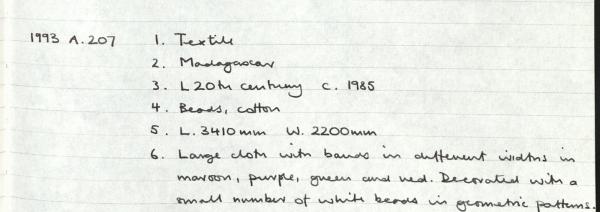 1993 A.207 1. Textile
2. Madagascar
3. L 20th century c. 1985
4. Beads, cotton
5. L. 3410mm W. 2200mm
6. Large cloth with bands in different widths in
maroon, purple, green and red. Decorated with a
small number of white beads in geometric patterns.